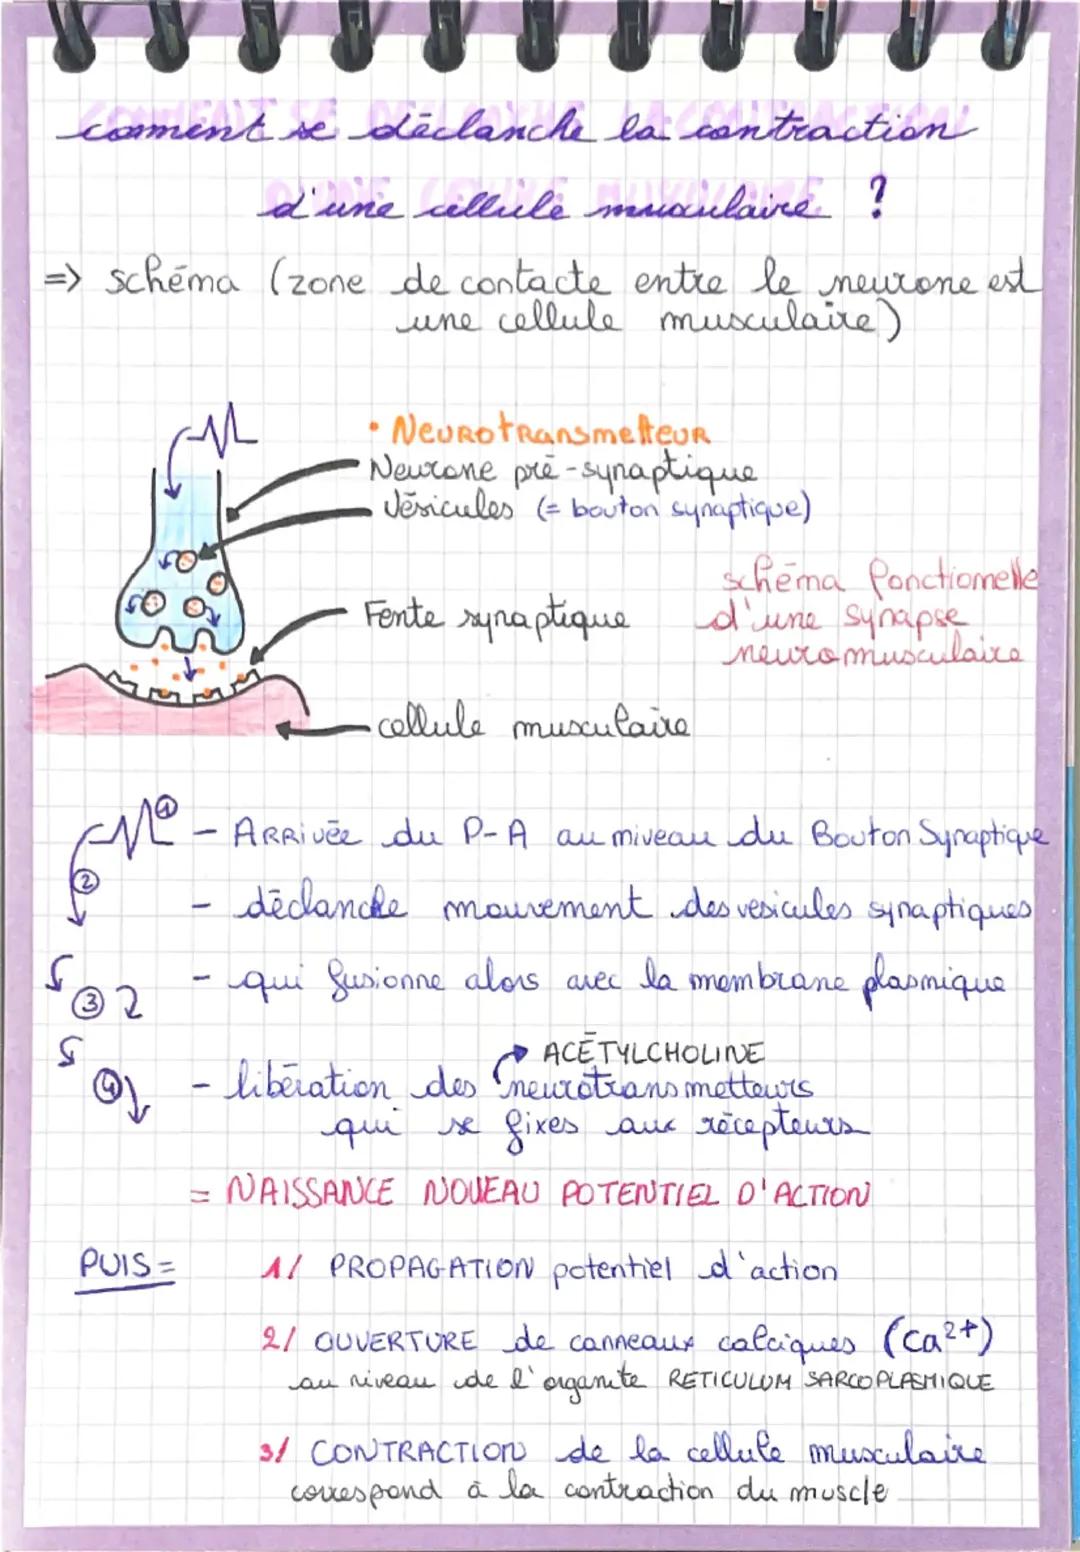 comment se déclanche la contraction
d'une cellule musculaire ?
=> schéma (zone de contacte entre le neurone est
une cellule musculaire)
• Neurotransmetteur
Neurone pré-synaptique
Vésicules (= bouton synaptique)
schéma fonctionnelle
d'une synapse
neuromusculaire
Fente synaptique
cellule musculaire
① - ARRivée du P-A au niveau du Bouton Synaptique
② - déclanche mouvement des vesicules synaptiques
③ - qui fusionne alors avec la membrane plasmique
ACÉTYLCHOLINE
④ - libération des neurotransmetteurs
qui se fixes aux récepteurs
= NAISSANCE NOUVEAU POTENTIEL D'ACTION
PUIS = 1/ PROPAGATION potentiel d'action
2/ OUVERTURE de canneaux calciques (Ca²⁺)
au niveau de l'organite RETICULUM SARCOPLASMIQUE
3/ CONTRACTION de la cellule musculaire
correspond à la contraction du muscle